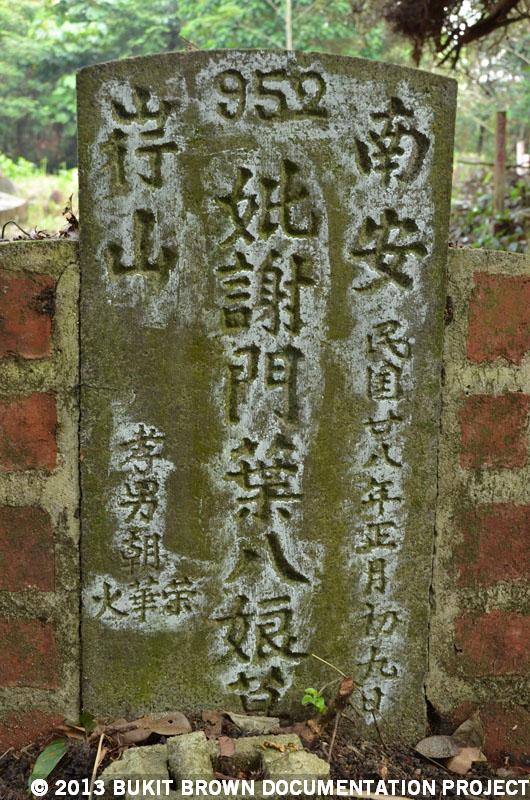 952
南安
民国廿八年正月初九日
妣謝門葉八娘
山
孝男朝
榮華火
© 2013 BUKIT BROWN DOCUMENTATION PROJECT